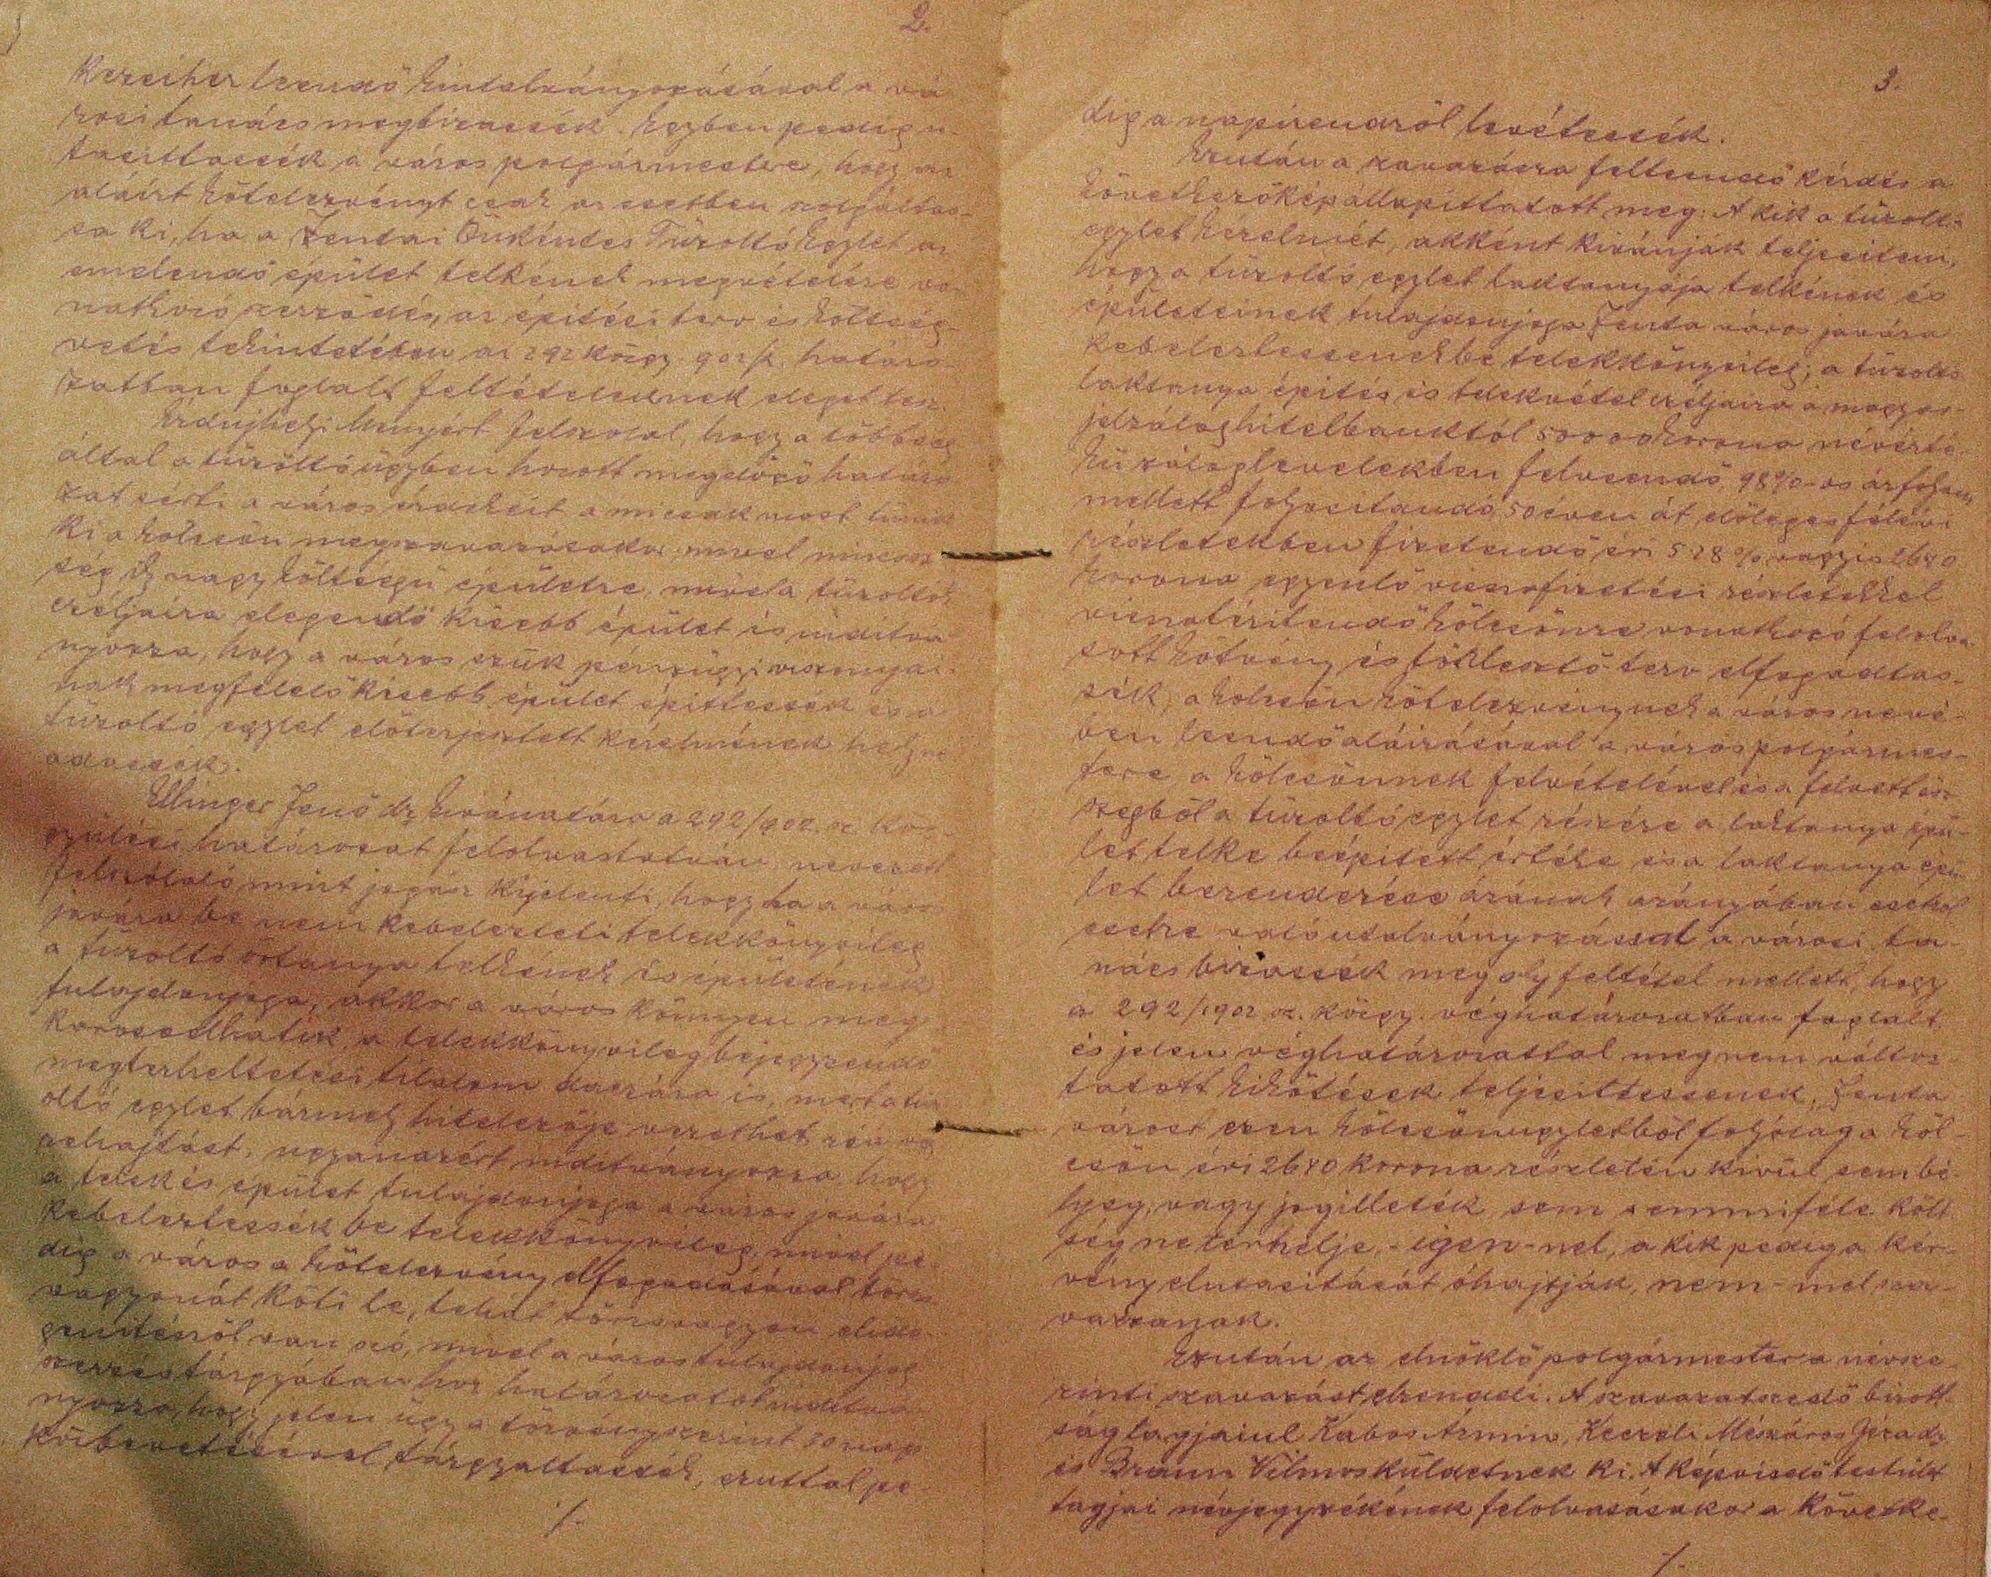 2.
kezeihez leendő kiutalványozásával a vá-
rosi tanács megbizassék. Egyben pedig u-
tasittassék a város polgármestere, hogy az
aláirt kötelezvényt csak az esetben szolgáltas-
sa ki, ha a Zentai Önkéntes Tüzoltó Egylet az
emelendő épület telkének megvételére vo-
natkozó szerződés, az épitési terv és költség-
vetés tekintetében az 292 közgy. 902/k. határo-
zatban foglalt feltételeknek eleget tesz.
Érdujhelyi Menyért felszólal, hogy a többség
által a tüzoltó ügyben hozott megelőző határo-
zat sérti a város érdekeit a mi csak most tünik
ki a kölcsön megszavazásakor mivel nincs szük-
ség ily nagy költségü épületre, mivel a tüzoltók
céljaira elegendő kisebb épület és inditvá-
nyozza, hogy a város szük pénzügyi viszonyai-
nak megfelelő kisebb épület épittessék és a
tüzoltó egylet előterjesztett kérelmének hely ne
adassék.
Ellinger Jenő dr kivánatára a 292/902. sz. köz-
gyülési határozat felolvastatván, nevezett
felszólaló mint jogász kijelenti, hogy ha a város
javára be nem kebelezteti telekkönyvileg
a tüzoltó őrtanya telkének és épületének
tulajdonjoga, akkor a város könnyen meg-
károsodhatik a telekkönyvileg bejegyzendő
megterheltetési tilalom daczára is, mert a tüz-
oltó egylet bármely hitelezője vezethet rá vég-
rehajtást, ugyanazért inditványozza, hogy
a telek és épület tulajdonjoga a város javára
kebeleztessék be telekkönyvileg, mivel pe-
dig a város a kötelezvény elfogadásával törzs-
vagyonát köti le, tehát törzsvagyon elide-
genitésről van szó, mivel a város tulajdonjog
szerzés tárgyában hoz határozatot inditvá-
nyozza, hogy jelen ügy a törvényszerint 30 nap
közbevetésével tárgyaltassék, ezuttal pe-
./.
3.
dig a napirendről levétessék.
Ezután a szavazásra felteendő kérdés a
következőkép állapittatott meg: A kik a tüzoltó
egylet kérelmét, akként kivánják teljesiteni,
hogy a tüzoltó egylet laktanyája telkének és
épületeinek tulajdonjoga Zenta város javára
kebeleztessenek be telekkönyvileg; a tüzoltó
laktanya épités és telekvétel céljaira a magyar-
jelzáloghitelbanktól 50000 korona névérté-
kü záloglevelekben felveendő, 98%-os árfolyam
mellett folyositandó, 50 éven át előleges félévi
részletekben fizetendő évi 5.28 % vagyis 2640
korona egyenlő visszafizetési részletekkel
visszatéritendő kölcsönre vonatkozó felolva-
sott kötvény és törlesztő terv elfogadtas-
sék, a kölcsön kötelezvénynek a város nevé-
ben leendő aláirásával a város polgármes-
tere, a kölcsönnek felvételével és a felvett ösz-
szegből a tüzoltó egylet részére a laktanya épü-
let telke beépitett értéke és a laktanya épü-
let berendezése árának arányában esetről
esetre való utalványozással a városi ta-
nács bizassék meg oly feltétel mellett, hogy
a 292/1902 sz. közgy. véghatározatban foglalt
és jelen véghatározattal meg nem változ-
tatott kikötések teljesittessenek, Zenta
várost ezen kölcsönügyletből folyólag a köl-
csön évi 2640 korona részletén kivül sem bé-
lyeg, vagy jogilleték sem semmiféle költ-
ség ne terhelje, - igen-nel, a kik pedig a kér-
vény elutasitását óhajtják, nem-mel sza-
vazzanak.
Ezután az elnöklő polgármester a névsze-
rinti szavazást elrendeli. A szavazatszedő bizott-
ság tagjaiul Kabos Ármin, Keczeli Mészáros Géza dr
és Braun Vilmos küldetnek ki. A képviselő testület
tagjai névjegyzékének felolvasásakor a követke-
./.